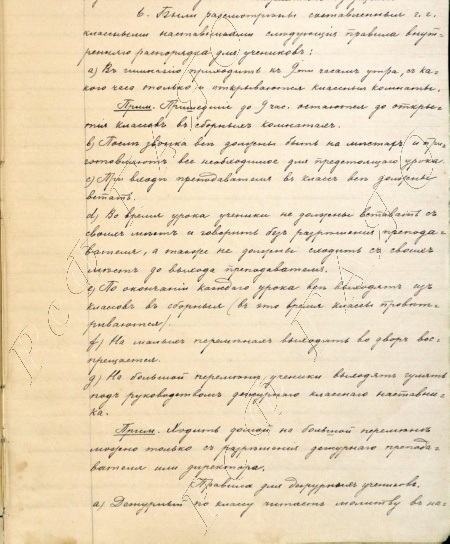 6. Были разсмотрены составленныя г.г.
классными наставниками следующія правила внут-
ренняго распорядка для учениковъ:
а) Въ гимназію приходить къ 9ти часамъ утра, съ ка-
кого часа только и открываются классныя комнаты.
Прим. Пришедшіе до 9 час. остаются до откры-
тія классовъ въ сборныхъ комнатахъ.
b) Послѣ звонка всѣ должны быть на мѣстахъ и при-
готовляютъ все необходимое для предстоящаго урока.
c) При входѣ преподавателя въ классъ всѣ должны
встать.
d) Во время урока ученики не должны вставать съ
своихъ мѣстъ и говорить безъ разрѣшенія препода-
вателя, а также не должны сходить съ своихъ
мѣстъ до выхода преподавателя.
e) По окончаніи каждаго урока всѣ выходятъ изъ
классовъ въ сборныя (въ это время классы провѣт-
риваются).
f) На малыхъ перемѣнахъ выходить во дворъ вос-
прещается.
g) На большой перемѣнѣ ученики выходятъ гулять
подъ руководствомъ дежурнаго класснаго наставни-
ка.
Прим. Ходить домой на большой перемѣнѣ
можно только съ разрѣшенія дежурнаго препода-
вателя или директора.
Правила для дежурныхъ учениковъ.
а) Дежурный по классу читаетъ молитву въ на-